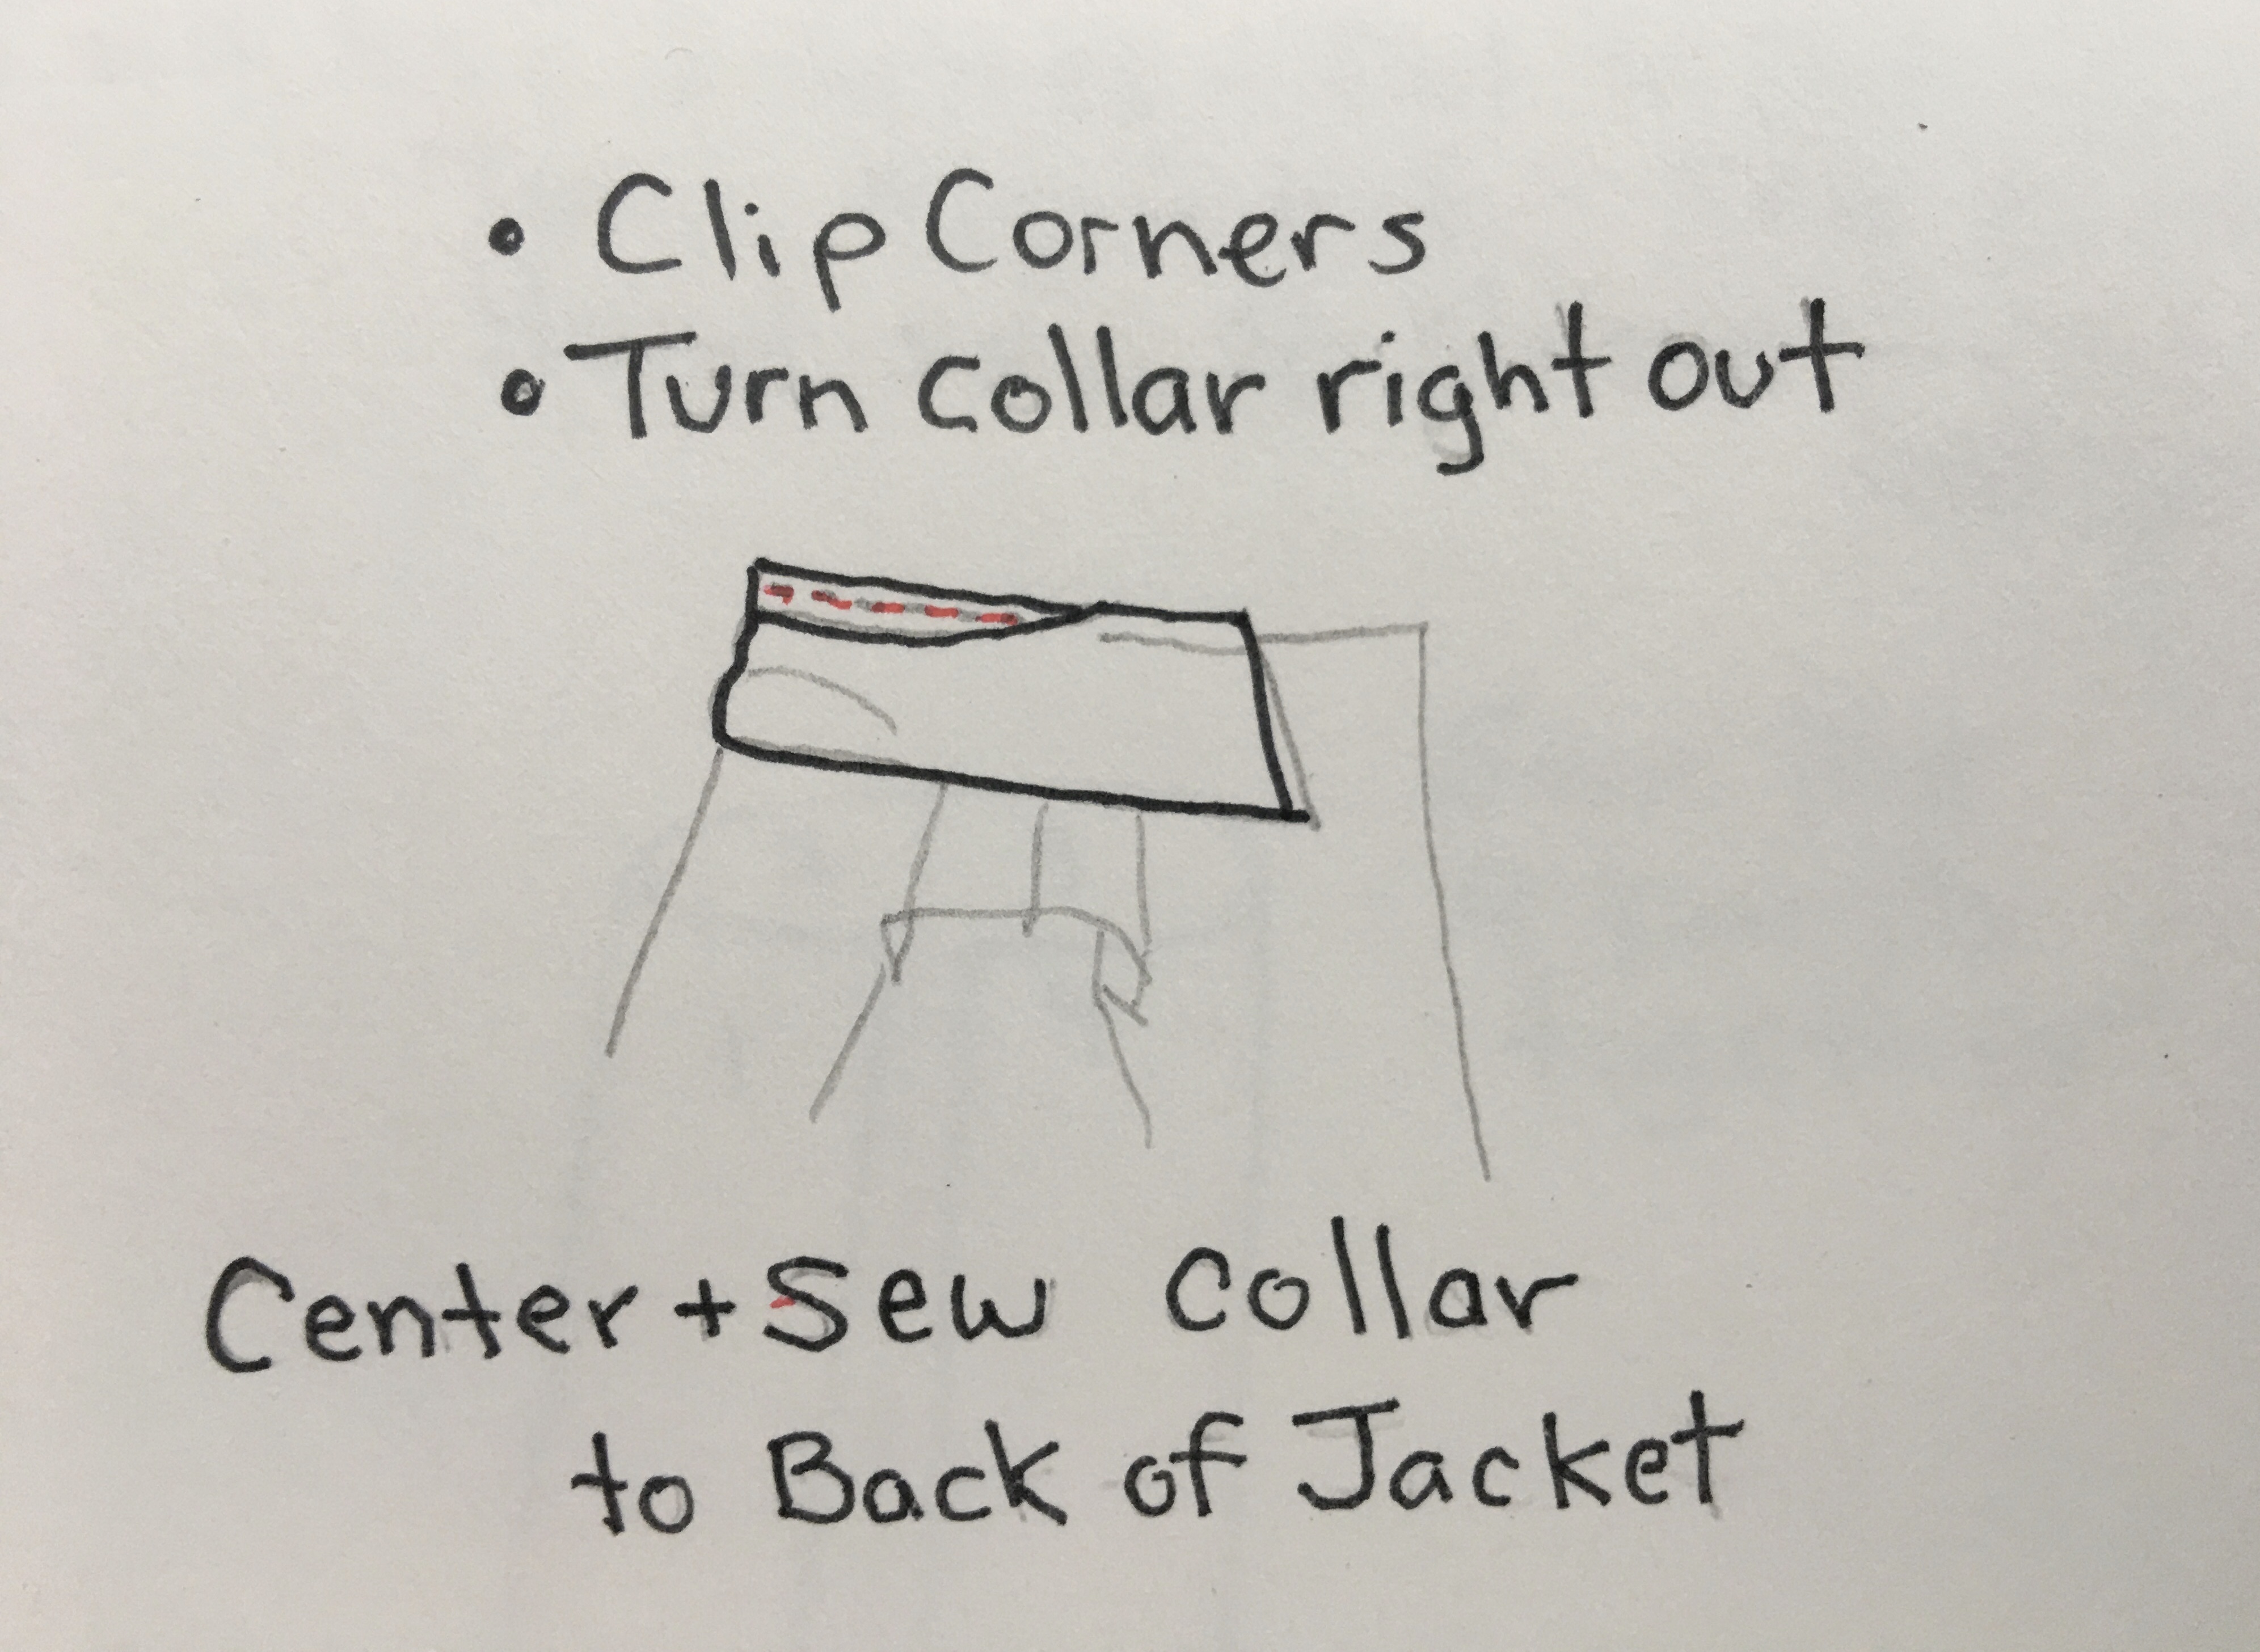 • Clip Corners
• Turn Collar right out
Center + Sew Collar
to Back of Jacket